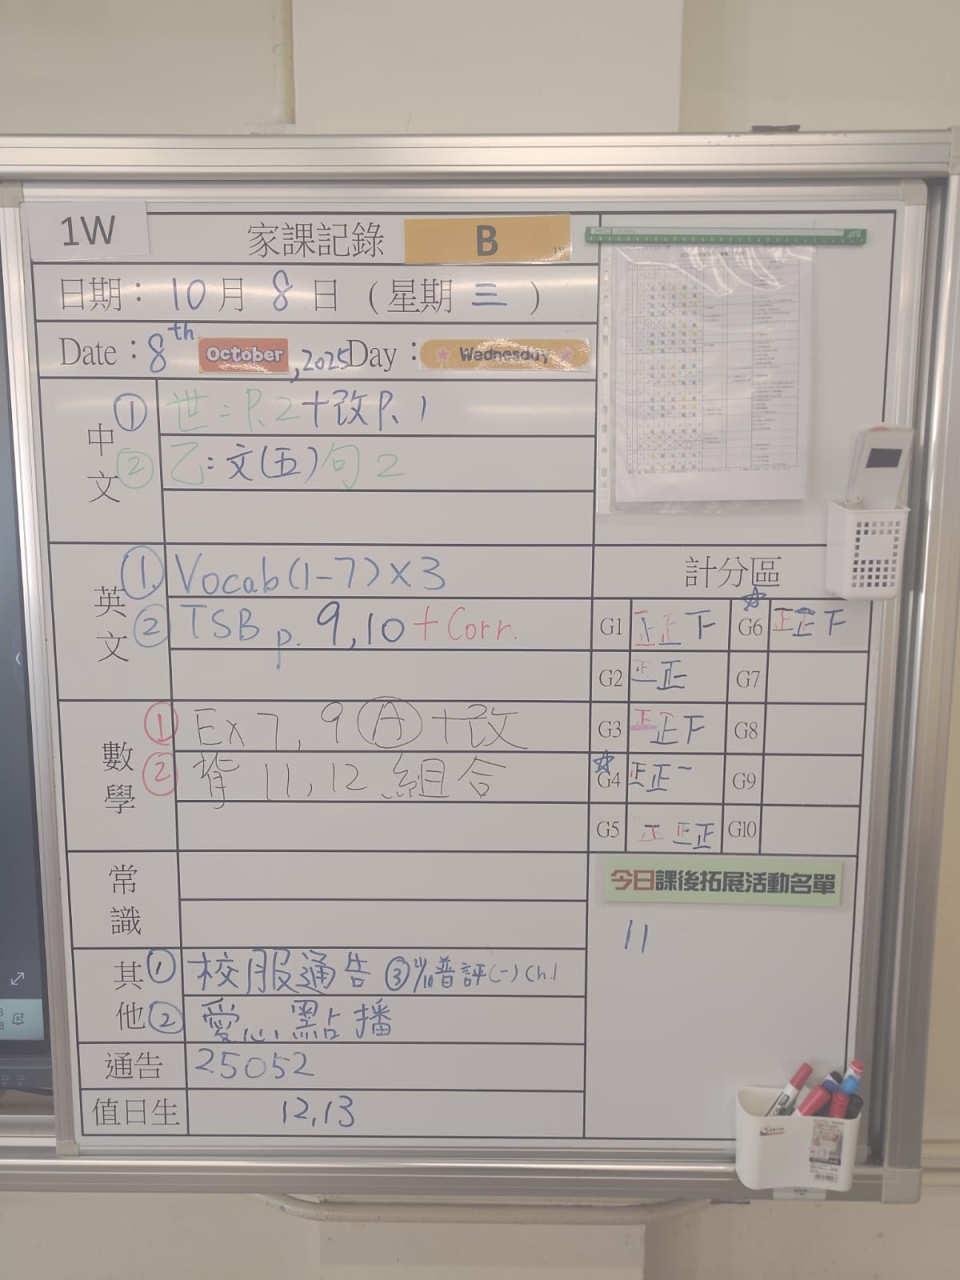 1W
家課記錄 B
日期：10月8日（星期三）
Date：8th October, 2025 Day：Wednesday
中文
① 世：P.2+改P.1
② 乙：文(五)句2
英文
① Vocab(1-7)×3
② TSB p. 9,10+Corr.
數學
① Ex 7, 9 Ⓐ+改
② 背 11, 12 組合
常識
其他
① 校服通告 ③ 普評(一)Ch1
② 愛心點播
通告 25052
值日生 12,13
計分區
G1 正正下 G6 正正下
G2 正正 G7
G3 正正下 G8
G4 正正一 G9
G5 正正正 G10
今日課後拓展活動名單
11